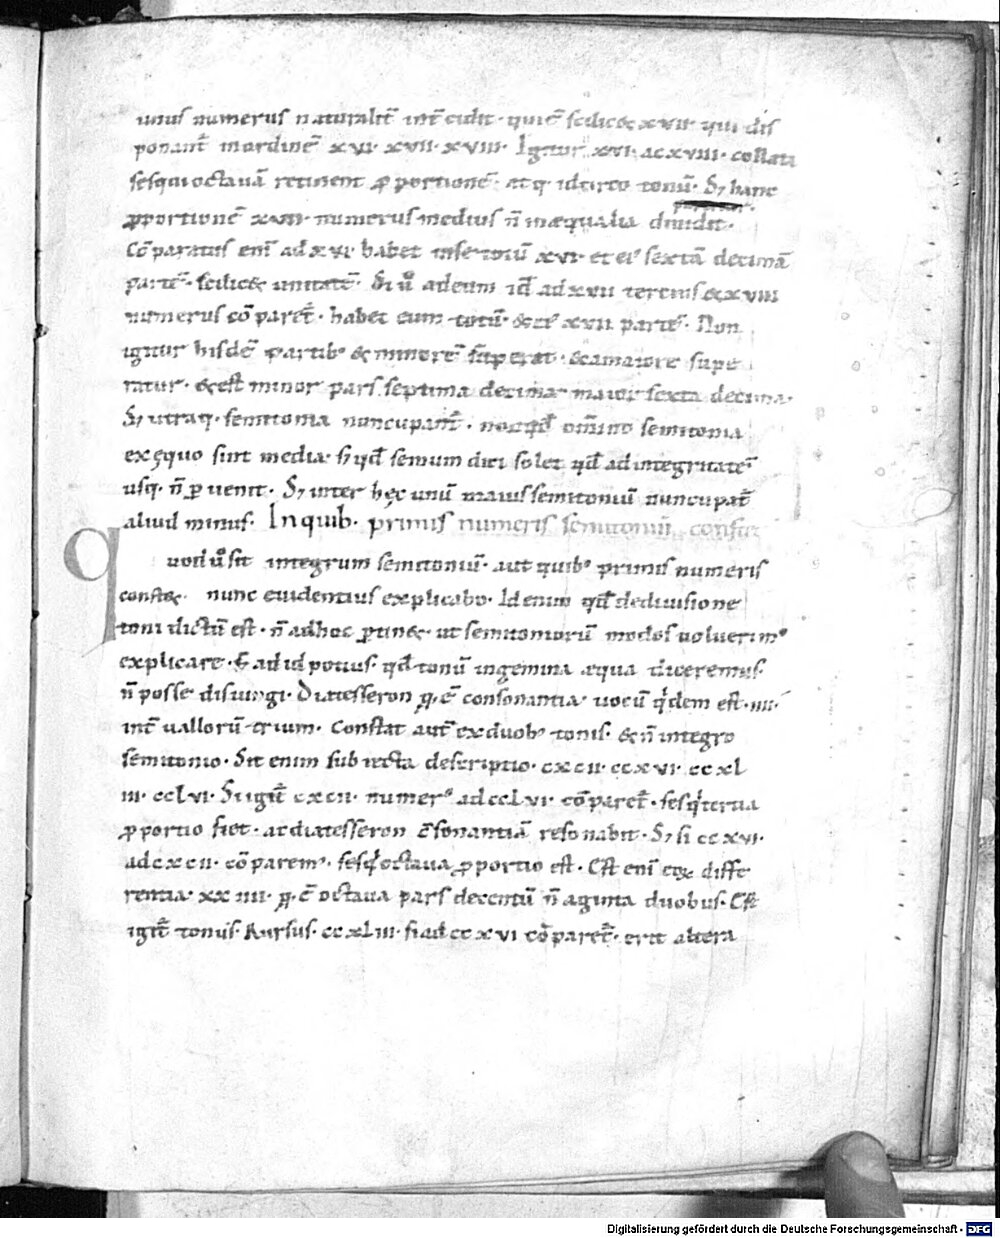 unus numerus naturalit̄ int̄cidit· qui ē scilic& xvii· qui dis
ponant̄ inordinē xvi· xvii· xviii· Igitur xvi· ac xviii· collata
sesquioctauā retinent ꝓportionē· atq· idcirco tonū· S; hanc
ꝓportionē xvii· numerus medius n̄ inæqualia diuidit·
Cōparatus eni̅ ad xvi· habet inse totū xvi· et ei' sextā decimā
partē· scilic& unitatē· Si ů adeum id̄ ad xvii tercius & xviii
numerus cōparet̄· habet eum totū· & ei' xvii partē· Non
igitur hisdē partib' & minorē superat· & amaiore supe
ratur· & est minor pars septima decima· maior sexta decima·
S; utraq· semitonia nuncupant̄· non qd̄ om̄ino semitonia
ex ęquo sint media· s; qd̄ semum dici solet qd̄ ad integritatē
usq· n̄ ꝑuenit· S; inter hęc unū maius semitoniū nuncupat̄
aliud minus· In quib· primis numeris semitoniū consta
quod ů sit integrum semitoniū· aut quib' primis numeris
const&· nunc euidentius explicabo· Id enim qd̄ dediuisione
toni dictū est· n̄ adhoc ꝑtin&· ut semitoniorū modos uoluerim'
explicare· S; ad id potius· qd̄ tonū ingemina æqua diceremus
n̄ posse disiungi· Diatesseron q̨ ē consonantia· uocū q'dem est· iiii·
int̄uallorū trium· Constat aut̄ ex duob' tonis· & n̄ integro
semitonio· Sit enim subiecta descriptio· cxcii· ccxvi· ccxl
iii· cclvi· Si igit̄ cxcii· numer' ad cclvi· cōparet̄· sesq'tertia
ꝓportio fiet· ac diatesseron c̄sonantiā resonabit· S; si ccxvi·
ad cxcii· cōparem'· sesq'octaua ꝓportio est· Est eni̅ eoꝝ diffe
rentia· xxiiii· q̨ ē octaua pars decentū n̄aginta duobus· Est
igit̄ tonus· Rursus· ccxliii· si ad ccxvi cōparet̄· erit altera
Digitalisierung gefördert durch die Deutsche Forschungsgemeinschaft - DFG